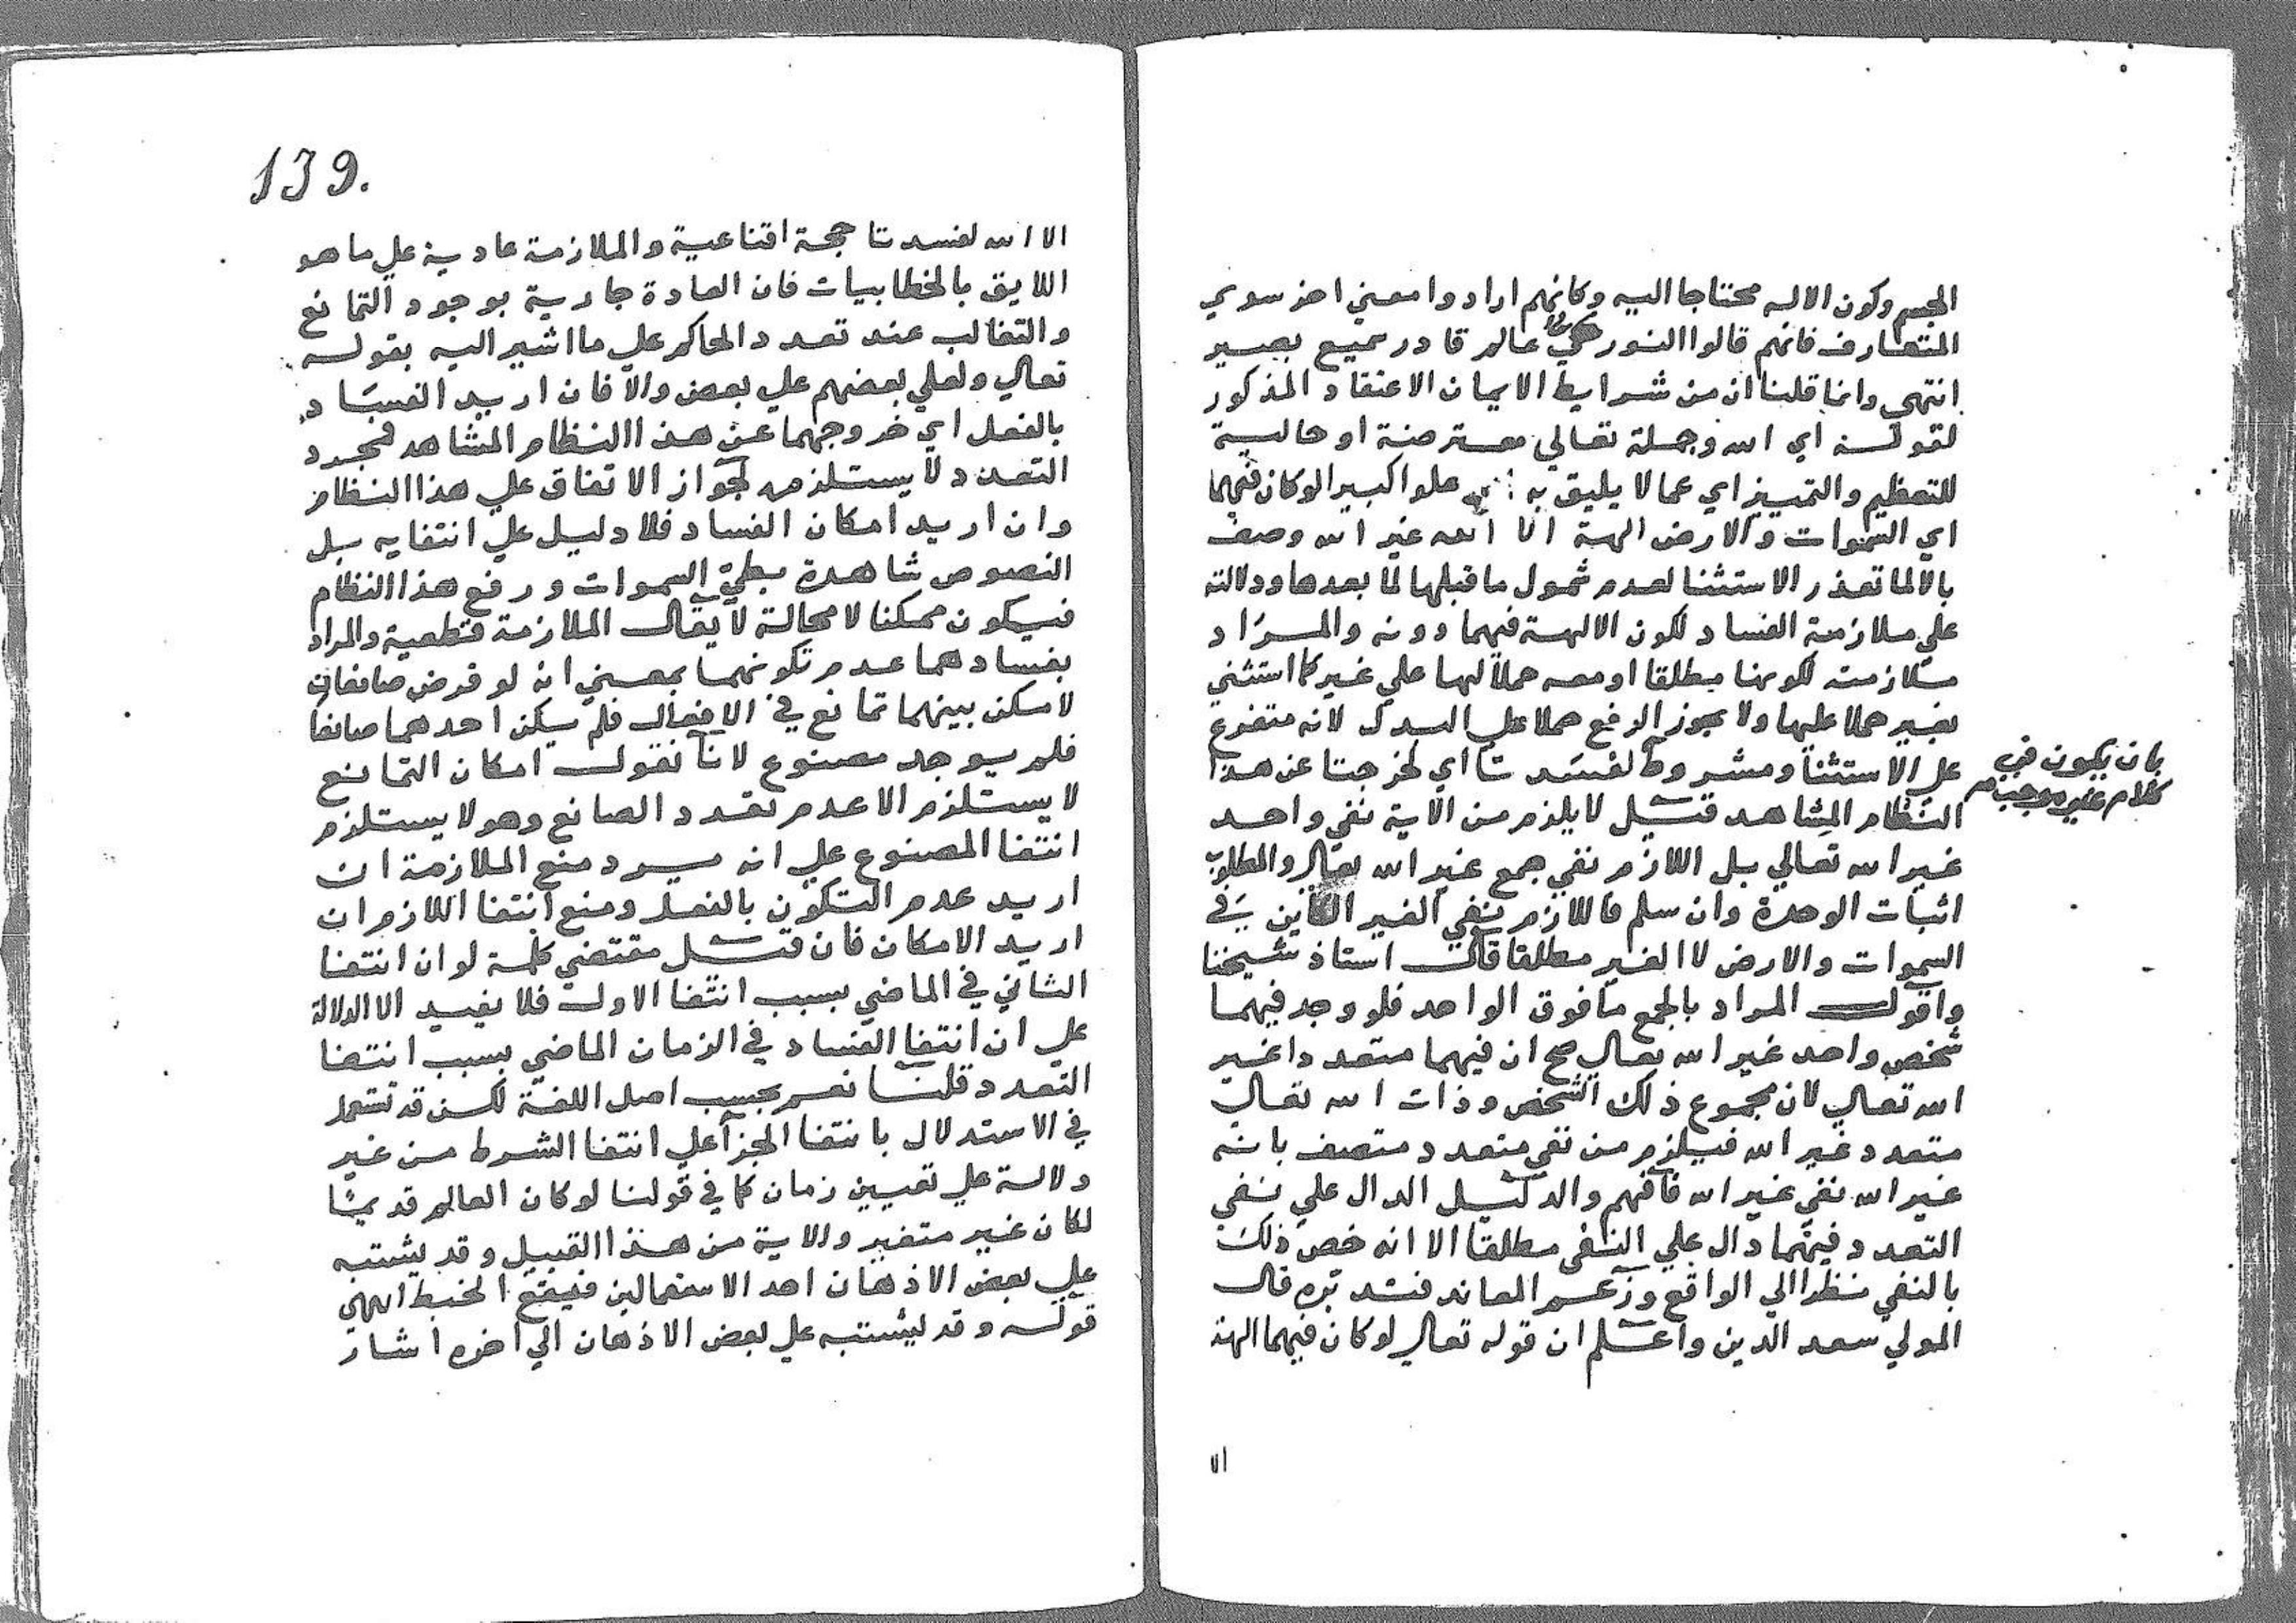 الجسم وكون الاله محتاجا اليه وكانهم ارادوا معني اخر سوي
المتعارف فانهم قالوا النور حي عالم قادر سميع بصير
انتهي وانما قلنا ان من شرايط الايمان الاعتقاد المذكور
لقوله اي الله وجملة تعالي معترضة او حالية
للتعظيم والتمييز اي عما لا يليق به علوا كبيرا لو كان فيهما
اي السموات والارض الهة الا الله غير الله وصف
بالا لما تعذر الاستثنا لعدم شمول ما قبلها لما بعدها ودلالته
علي ملازمة الفساد لكون الالهة فيهما دونه والمراد
ملازمته لكونها مطلقا او معه حملا لها علي غير كما استثني
بغير حملا عليها ولا يجوز الرفع حملا علي البدل لانه متفرع
علي الاستثنا ومشروط لفسدتا اي لخرجتا عن هذا
بان يكون في
كلام غير موجب
النظام المشاهد قيل لا يلزم من الاية نفي واحد
غير الله تعالي بل اللازم نفي جمع غير الله تعالي والمطلوب
اثبات الوحدة وان سلم فاللازم نفي الغير الكاين في
السموات والارض لا الغير مطلقا قال استاذ شيخنا
واقول المراد بالجمع ما فوق الواحد فلو وجد فيهما
شخص واحد غير الله تعالي صح ان فيهما متعددا غير
الله تعالي لان مجموع ذلك الشخص وذات الله تعالي
متعدد غير الله فيلزم من نفي متعدد متصف بانه
غير الله نفي غير الله فافهم والدليل الدال علي نفي
التعدد فيهما دال علي النفي مطلقا الا انه خص ذلك
بالنفي نظرا الي الواقع وزعم المعاند فتدبره قال
المولي سعد الدين واعلم ان قوله تعالي لو كان فيهما الهة
الا
139.
الا الله لفسدتا حجة اقناعية والملازمة عادية علي ما هو
اللايق بالخطابيات فان العادة جارية بوجود التمانع
والتغالب عند تعدد الحاكم علي ما اشير اليه بقوله
تعالي ولعلي بعضهم علي بعض والا فان اريد الفساد
بالفعل اي خروجهما عن هذا النظام المشاهد فمجرد
التعدد لا يستلزمه لجواز الاتفاق علي هذا النظام
وان اريد امكان الفساد فلا دليل علي انتفايه بل
النصوص شاهدة بطي السموات ورفع هذا النظام
فيكون ممكنا لا محالة لا يقال الملازمة قطعية والمراد
بفسادهما عدم تكونهما بمعني انه لو فرض صانعان
لامكن بينهما تمانع في الافعال فلم يكن احدهما صانعا
فلم يوجد مصنوع لانا نقول امكان التمانع
لا يستلزم الا عدم تعدد الصانع وهو لا يستلزم
انتفا المصنوع علي انه يرد منع الملازمة ان
اريد عدم التكون بالفعل ومنع انتفا اللازم ان
اريد الامكان فان قيل مقتضي كلمة لو ان انتفا
الثاني في الماضي بسبب انتفا الاول فلا يفيد الا الدلالة
علي ان انتفا الفساد في الزمان الماضي بسبب انتفا
التعدد قلنا نعم بحسب اصل اللغة لكن قد تستعمل
في الاستدلال بانتفا الجزآ علي انتفا الشرط من غير
دلالة علي تعيين زمان كما في قولنا لو كان العالم قديما
لكان غير متغير والاية من هذا القبيل وقد يشتبه
علي بعض الاذهان احد الاستعمالين فيقع الخبط انتهي
قوله وقد يشتبه علي بعض الاذهان الي اخره اشار